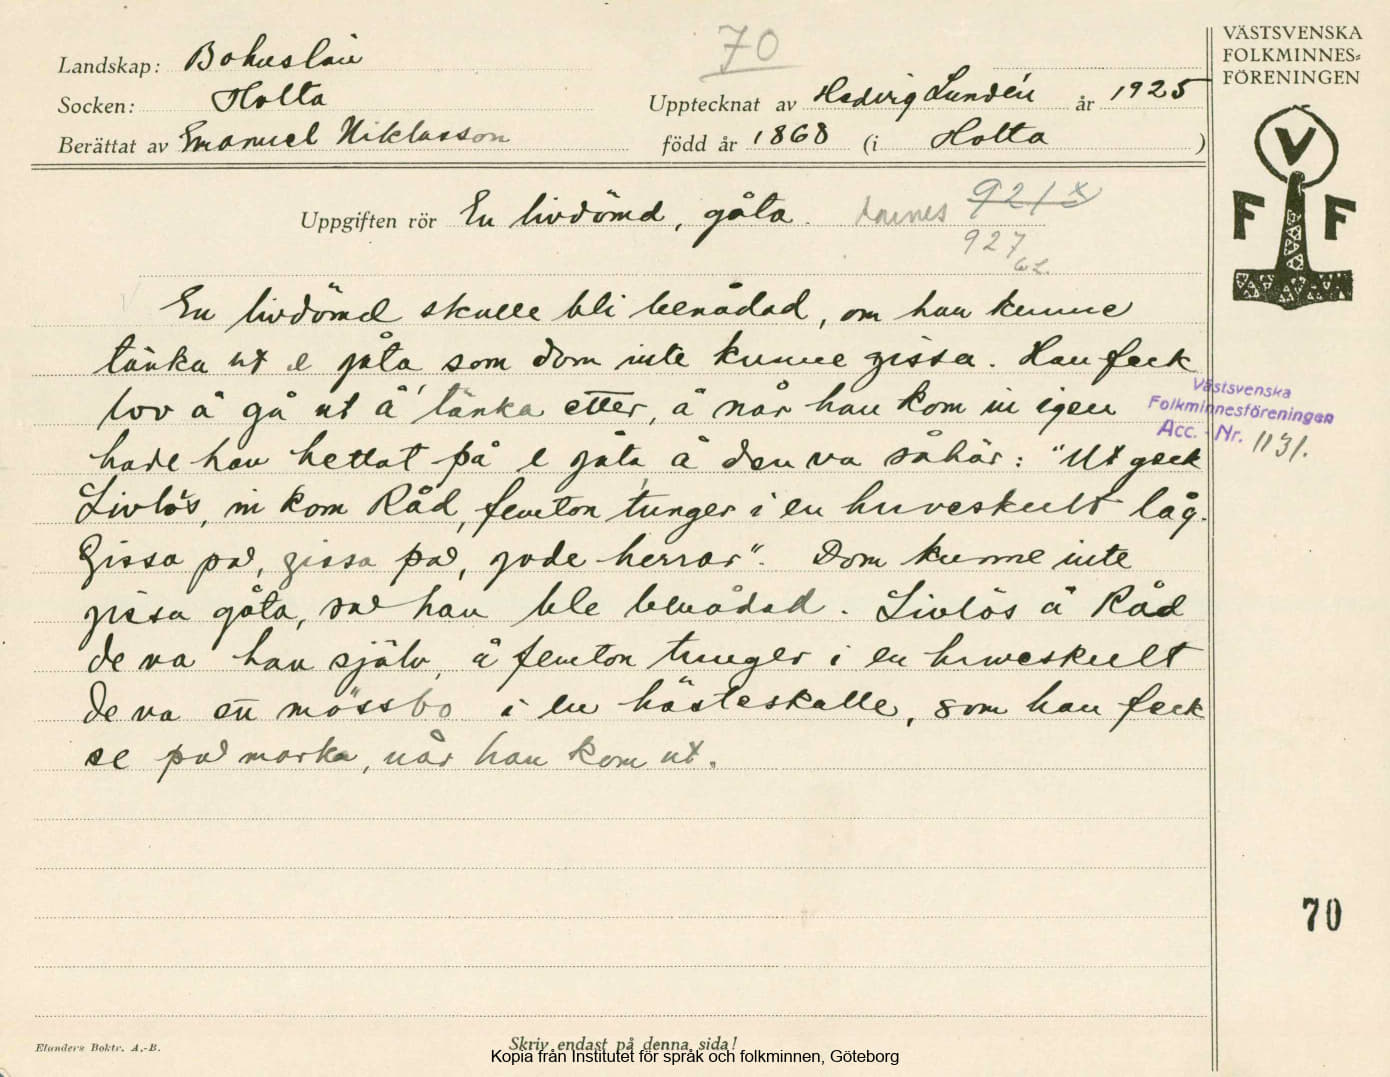 70
VÄSTSVENSKA
FOLKMINNES=
FÖRENINGEN
Landskap: Bohuslän
Socken: Holta
Upptecknat av Hedvig Lundén år 1925
Berättat av Emanuel Niklasson
född år 1868 (i Holta )
V
F F
Uppgiften rör En livdömd, gåta.
921 x
927
En livdömd skulle bli benådad, om han kunne
tänka ut e gåta som dom inte kunne gissa. Han feck
lov å gå ut å tänka etter, å når han kom in igen
hade han hettat på e gåta å den va såhär: "Ut geck
Livlös, in kom Råd, femton tunger i en huveskult låg.
Gissa på, gissa på, gode herrar". Dom kunne inte
gissa gåta, så han ble benådad. Livlös å Råd
de va han själv, å femton tunger i en huveskult
de va ett mössbo i en hästeskalle, som han feck
se på marka, når han kom ut.
Västsvenska
Folkminnesföreningen
Acc. - Nr. 1131.
70
Elanders Boktr. A.-B.
Skriv endast på denna sida!
Kopia från Institutet för språk och folkminnen, Göteborg